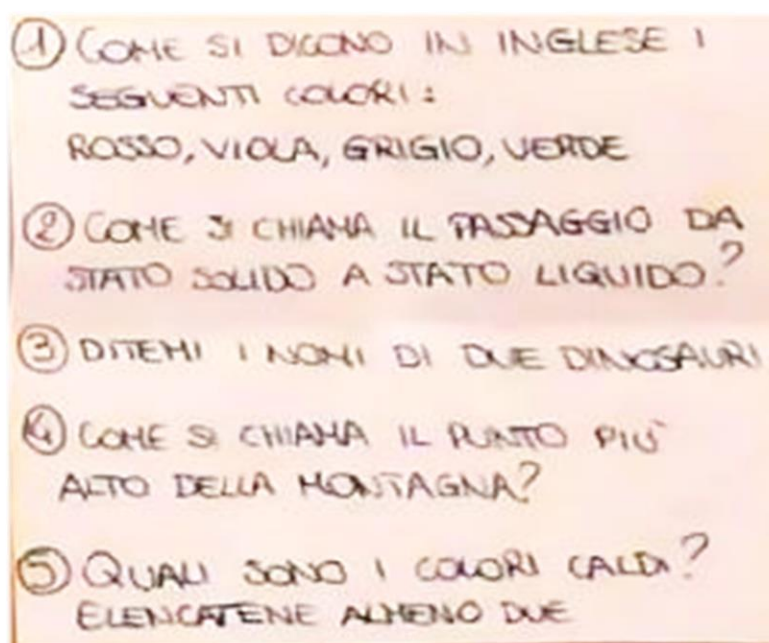 ① COME SI DICONO IN INGLESE I
SEGUENTI COLORI:
ROSSO, VIOLA, GRIGIO, VERDE
② COME SI CHIAMA IL PASSAGGIO DA
STATO SOLIDO A STATO LIQUIDO?
③ DITEMI I NOMI DI DUE DINOSAURI
④ COME SI CHIAMA IL PUNTO PIÙ
ALTO DELLA MONTAGNA?
⑤ QUALI SONO I COLORI CALDI?
ELENCATENE ALMENO DUE